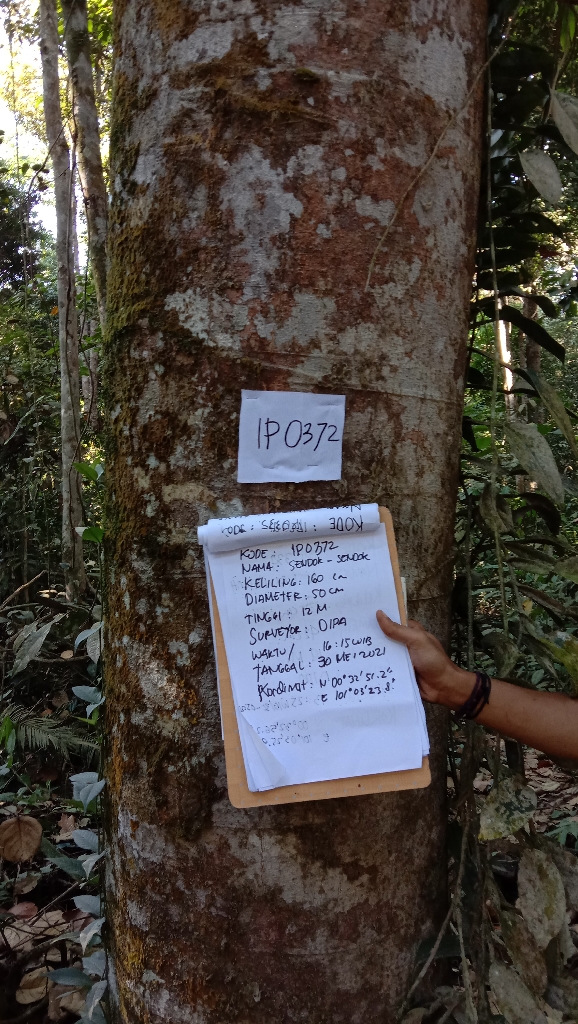 IP0372
KODE : IP0372
NAMA : SENDOK - SENDOK
KELILING : 160 cm
DIAMETER : 50 cm
TINGGI : 12 M
SURVEYOR : DIPA
WAKTU/ : 16:15 WIB
TANGGAL : 30 MEI 2021
Kordinat : N 00° 32' 51.2"
E 101° 03' 23.8"